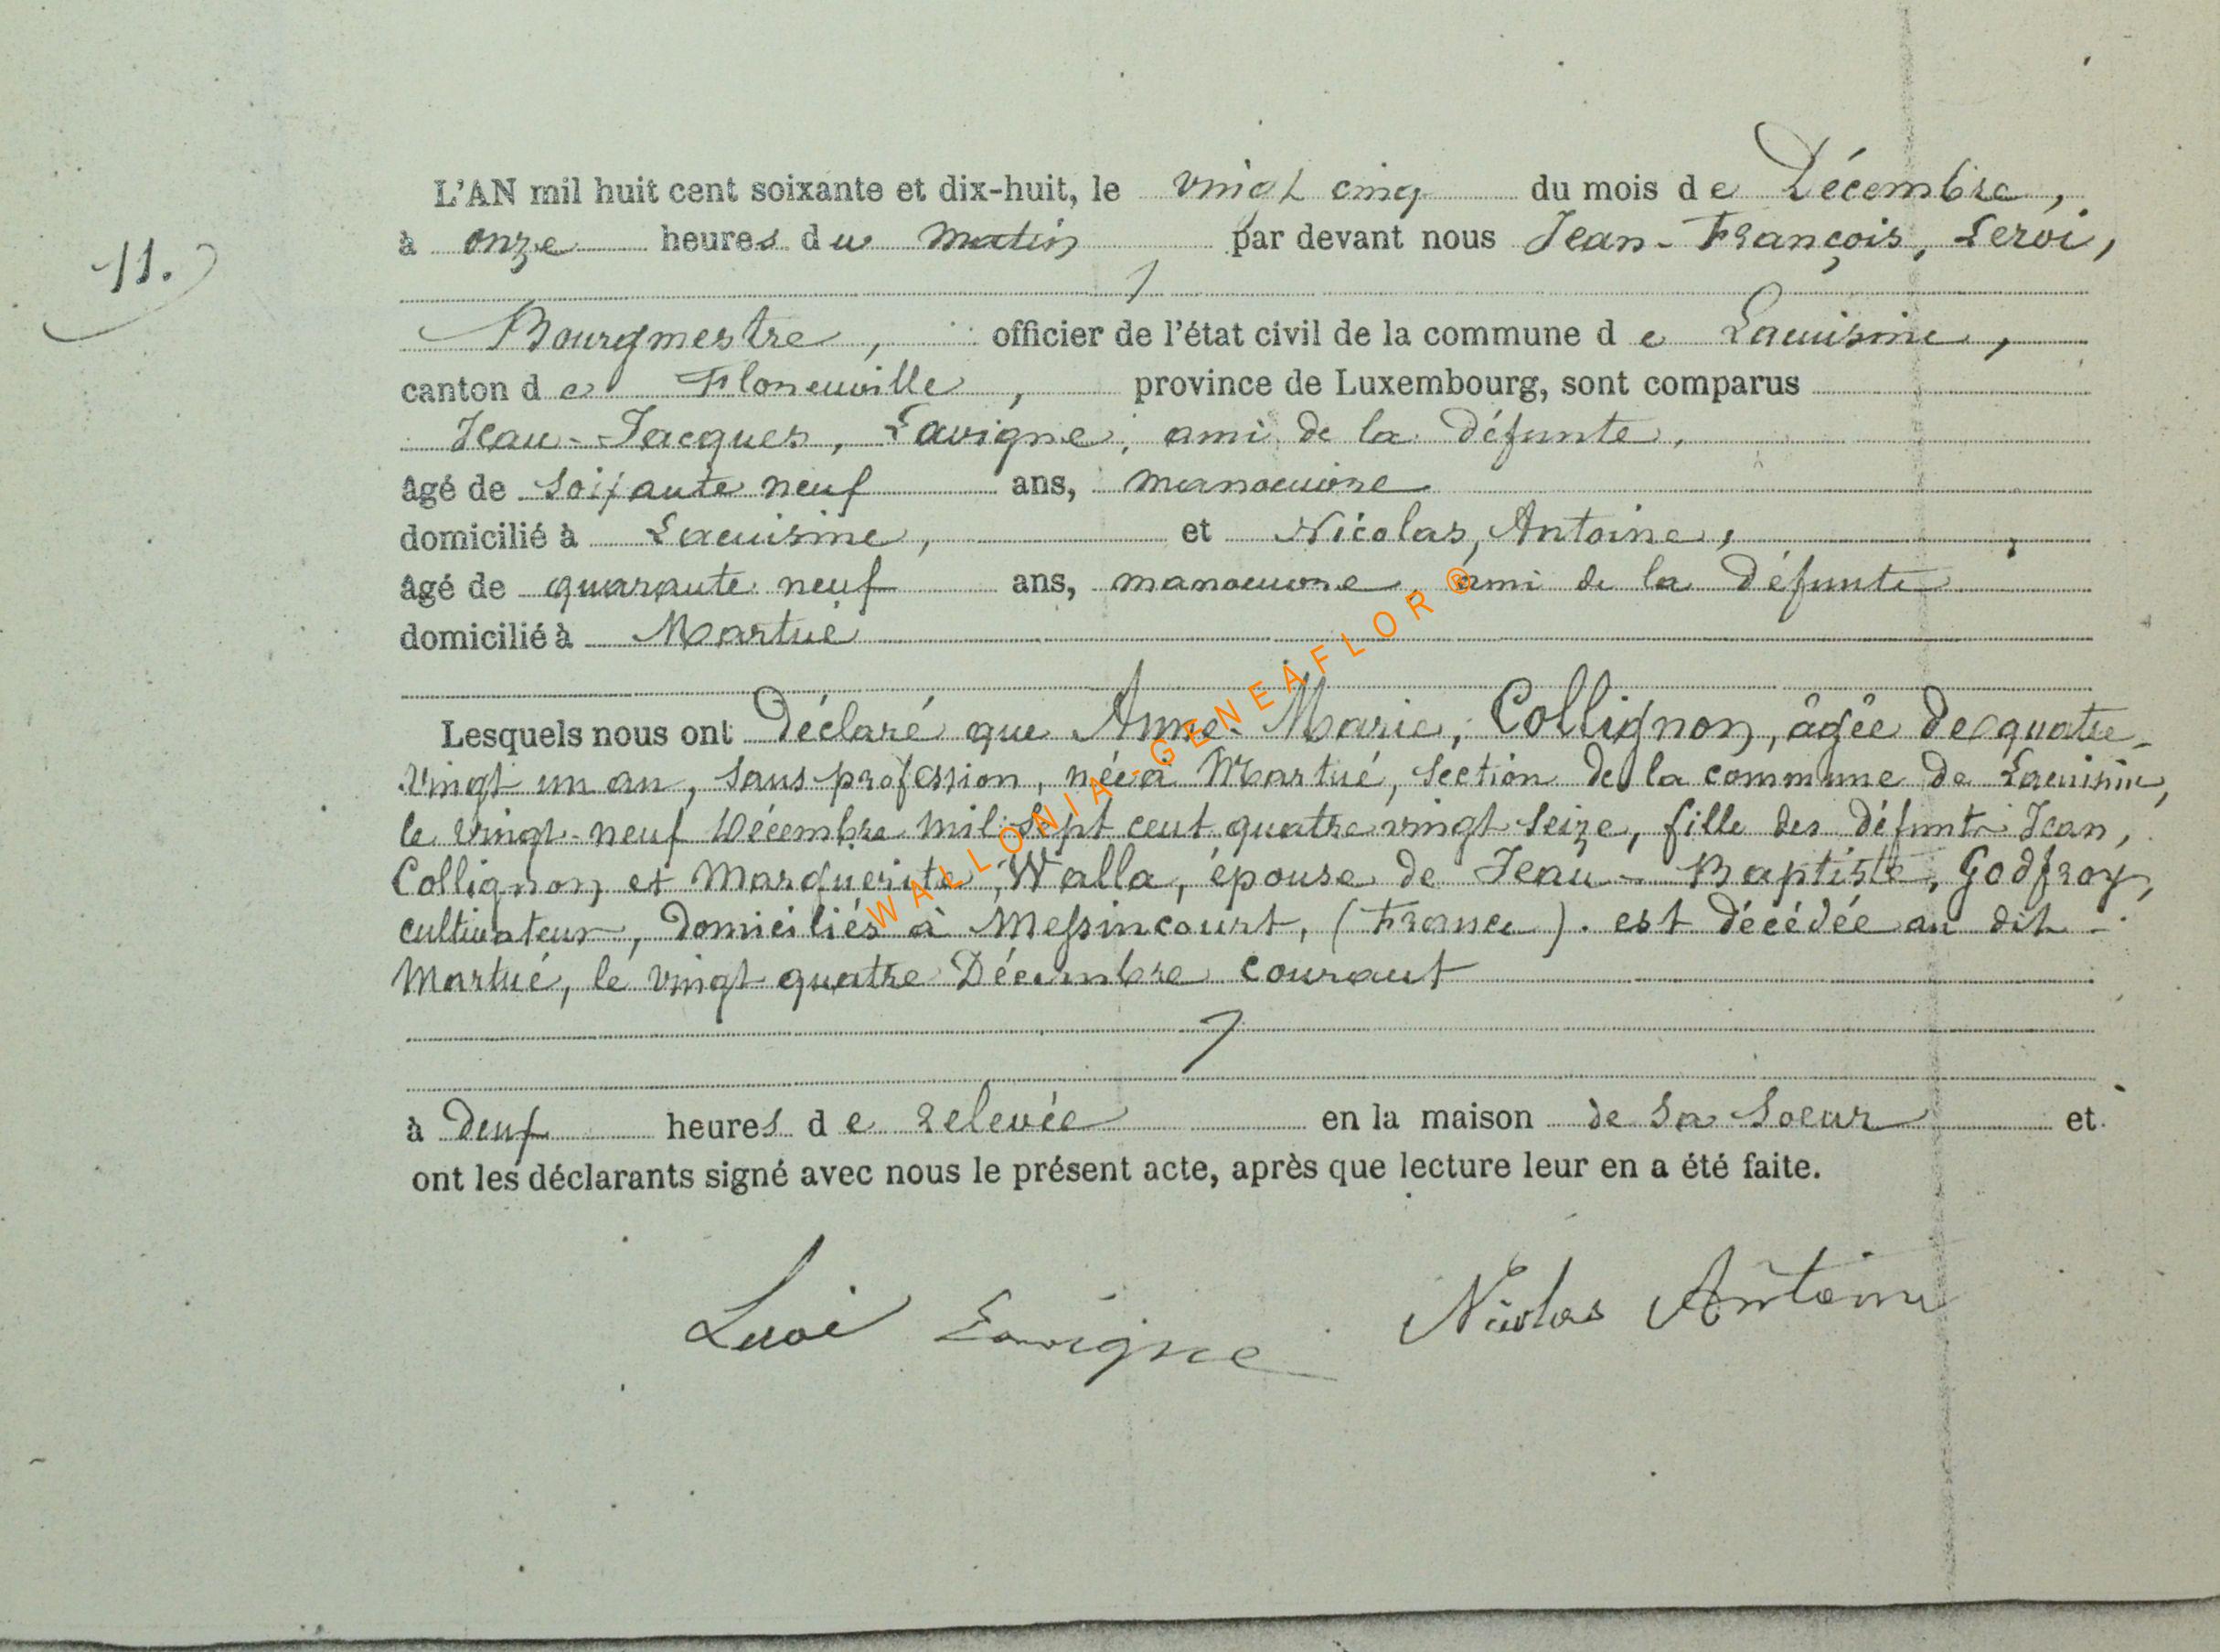 11.
L'AN mil huit cent soixante et dix-huit, le vingt cinq du mois de Décembre,
à onze heures du matin par devant nous Jean-François, Leroi,
Bourgmestre, officier de l'état civil de la commune de Lacuisine,
canton de Florenville, province de Luxembourg, sont comparus
Jean-Jacques, Lavigne, ami de la défunte,
âgé de soixante neuf ans, manoeuvre
domicilié à Lacuisine, et Nicolas, Antoine,
âgé de quarante neuf ans, manoeuvre ami de la défunte
domicilié à Martué
Lesquels nous ont Déclaré que Anne-Marie, Collignon, âgée de quatre-
vingt un an, sans profession, née à Martué, section de la commune de Lacuisine,
le vingt-neuf Décembre mil sept cent quatre vingt seize, fille des défunts Jean,
Collignon et Marguerite, Walla, épouse de Jean-Baptiste, Godfroy,
cultivateur, domiciliés à Messincourt, (France). est décédée au dit
Martué, le vingt quatre Décembre courant
à deux heures de relevée en la maison de sa soeur et
ont les déclarants signé avec nous le présent acte, après que lecture leur en a été faite.
Leroi Lavigne Nicolas Antoine
WALLONIA-GENEAFLOR®